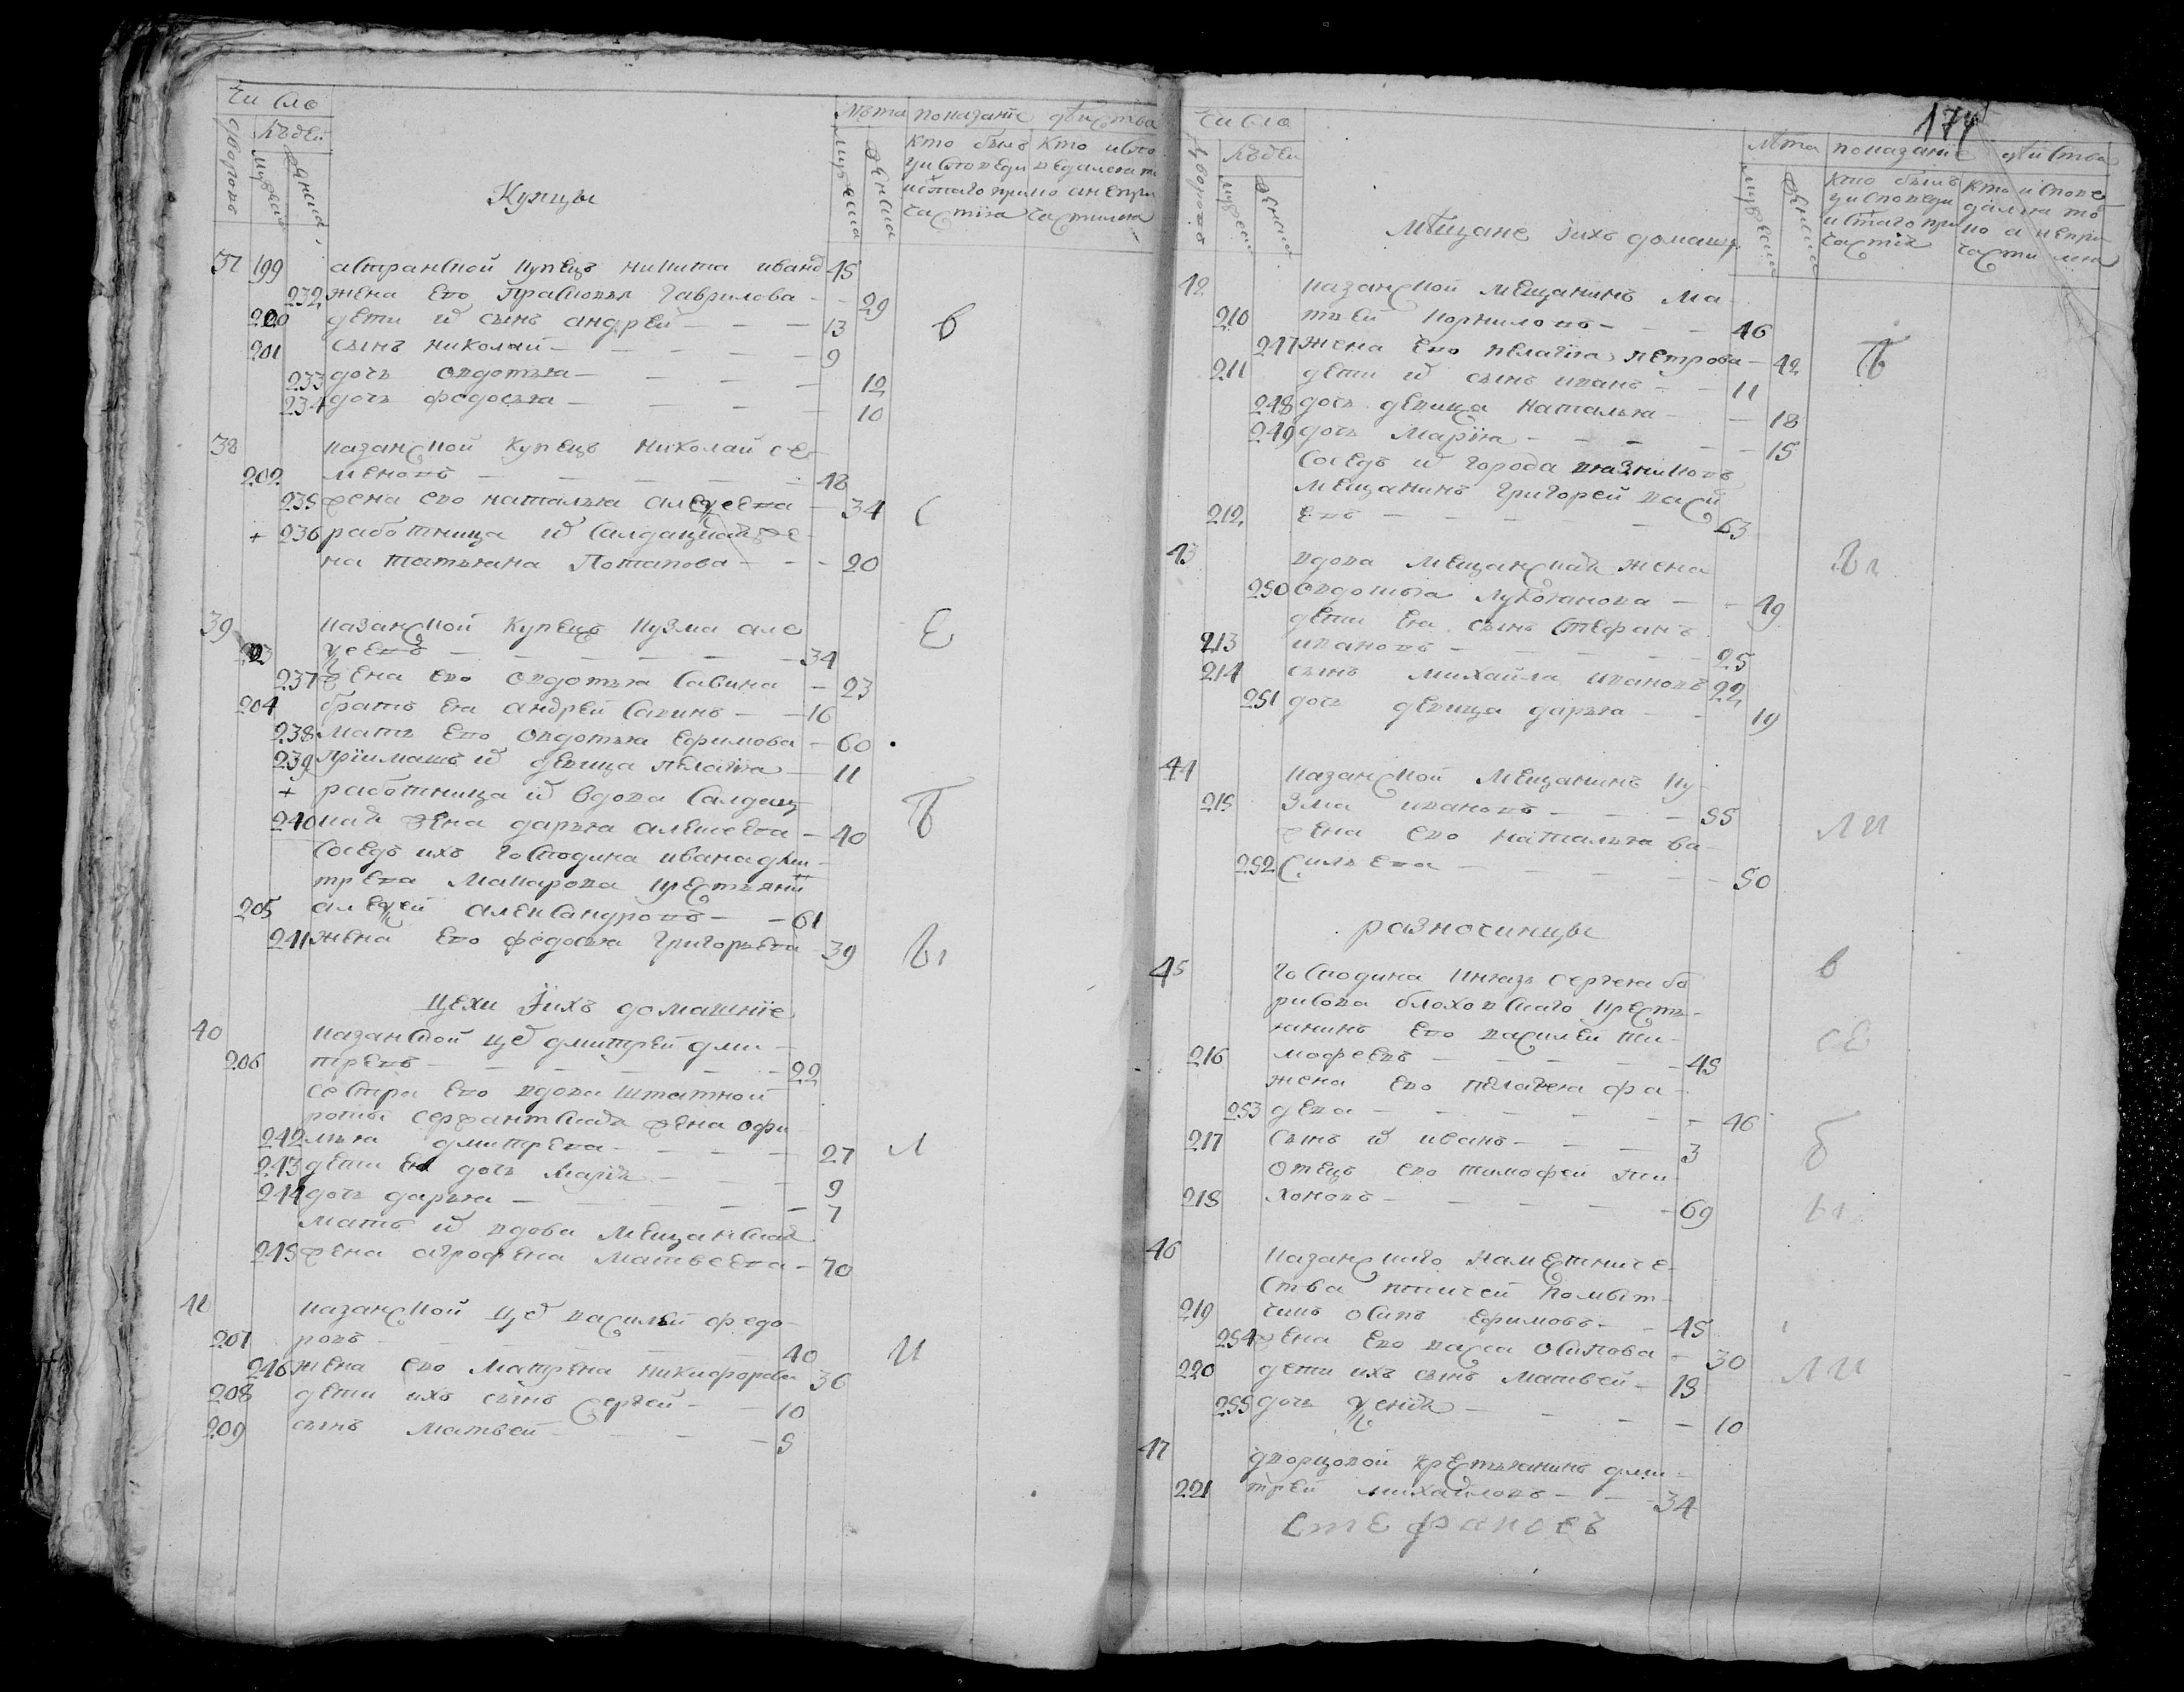 Число
дворовъ
людей
мужеска
женска
Купцы
Лѣта
мужеска
женска
показанїе дѣйства
кто былъ у исповеди и с̃таго причастїя
кто исповедался токмо а не причастился
37 199 астраханской купецъ никита ивано 45
232 жена ево Прасковья Гаврилова - - 29
200 дети и͠ сынъ андрей - - - 13
201 сынъ николай - - - - - 9
233 дочь овдотья - - - - 12
234 дочь федосья - - - - 10
38 казанской купецъ николай се-
202 меновъ - - - - - - 48
235 жена ево наталья алеѯеева - 34
+ 236 работница и͠ салдацкая же-
на татьяна Потапова - - - 20
39 казанской купецъ кузма але
203 ѯеевъ - - - - - - 34
237 жена ево овдотья савина - 23
204 братъ ея андрей савинъ - - 16
238 мать ево овдотья ефимова - 60
239 прїимышъ и͠ девица пелагїя - 11
+ работница и͠ вдова салдац-
240 кая жена дарья алеѯеева - 40
соседъ ихъ господина ивана дми-
трева макарова крестьяни
205 алеѯей александровъ - - 61
241 жена ево федосья григорьева 39
цехи ихъ домашнїе
40 казанской це͠ дмитрей дми-
206 тревъ - - - - - - 22
сестра ево вдова штатной
роты сержантская жена офи
242 мья дмитрева - - - - 27
243 дети ея дочь марїя - - - 9
244 дочь дарья - - - - - 7
мать и͠ вдова мещанская
245 жена агрофена матвеева - 70
41 казанской це͠ василей федо-
207 ровъ - - - - - - 40
246 жена ево матрена никифорова 36
208 дети ихъ сынъ сергей - - 10
209 сынъ матвей - - - - 5
174
Число
дворовъ
людей
мужеска
женска
Мещане ихъ домашн
Лѣта
мужеска
женска
показанїе дѣйства
кто былъ у исповеди и с̃таго причастїя
кто исповедался токмо а не причастился
42 казанской мещанинъ ма-
210 твей корниловъ - - - 46
247 жена ево пелагїя петрова - 42
211 дети и͠ сынъ иванъ - - 11
248 дочь девица наталья - - 18
249 дочь марїя - - - - - 15
соседъ и͠ города вязниковъ
мещанинъ григорей васил
212 евъ - - - - - - 63
43 вдова мещанская жена
250 овдотья лукоянова - - 49
дети ея сынъ стефанъ
213 ивановъ - - - - - 25
214 сынъ михайла ивановъ 22
251 дочь девица дарья - - 19
44 казанской мещанинъ ку-
215 зма ивановъ - - - 55
жена ево наталья ва-
252 сильева - - - - - 50
разночинцы
45 господина князь сергея бо
рисова болховскаго кресть-
янинъ ево василей ти-
216 мофеевъ - - - - - 45
жена ево пелагея фа-
253 деева - - - - - - 46
217 сынъ и͠ иванъ - - - 3
отецъ ево тимофей ти-
218 хоновъ - - - - - 69
46 казанскаго наместниче-
ства
219 осипъ ефимовъ - - 45
254 жена ево васса осипова - 30
220 дети ихъ сынъ матвей - 15
255 дочь ѯенїя - - - - 10
47 дворцовой крестьянинъ дми-
221 трей михайловъ - - - 34
Стефановъ